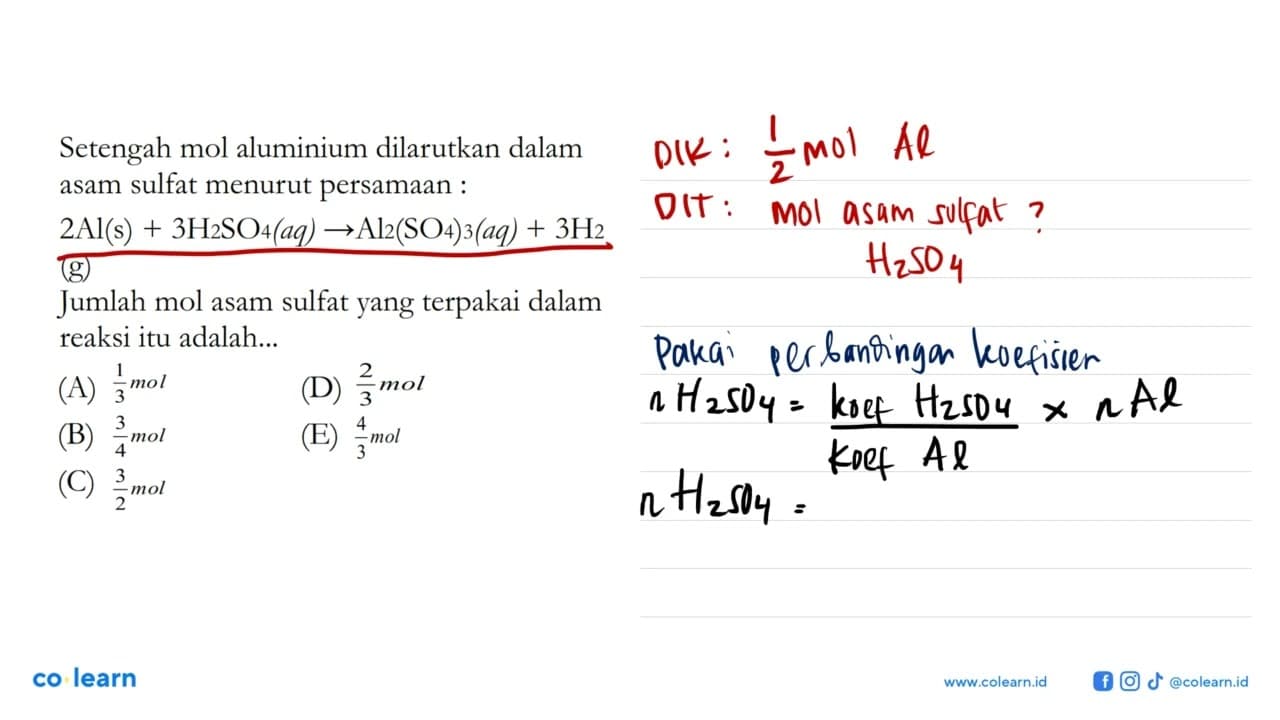 Setengah mol aluminium dilarutkan dalam
asam sulfat menurut persamaan :
2Al(s) + 3H2SO4(aq) →Al2(SO4)3(aq) + 3H2
(g)
Jumlah mol asam sulfat yang terpakai dalam
reaksi itu adalah...
(A) 1/3 mol
(B) 3/4 mol
(C) 3/2 mol
(D) 2/3 mol
(E) 4/3 mol
DIK : 1/2 mol Al
DIT : mol asam sulfat ?
H2SO4
Pakai perbandingan koefisien
n H2SO4 = koef H2SO4 / koef Al × n Al
n H2SO4 =
co learn
www.colearn.id
@colearn.id